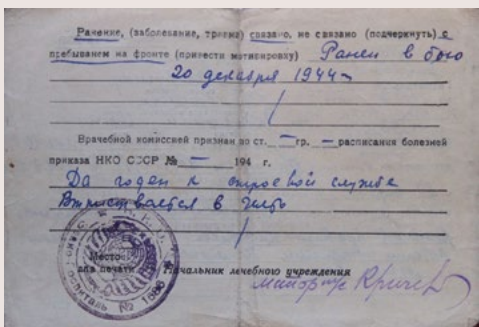 Ранение, (заболевание, травма) связано, не связано (подчеркнуть) с
пребыванием на фронте (привести мотивировку) Ранен в бою
20 декабря 1944 г
Врачебной комиссией признан по ст. — гр. — расписания болезней
приказа НКО СССР № — 194 г.
Да годен к строевой службе
в часть
Место
для печати
Начальник лечебного учреждения
госпиталь № 1686
майор